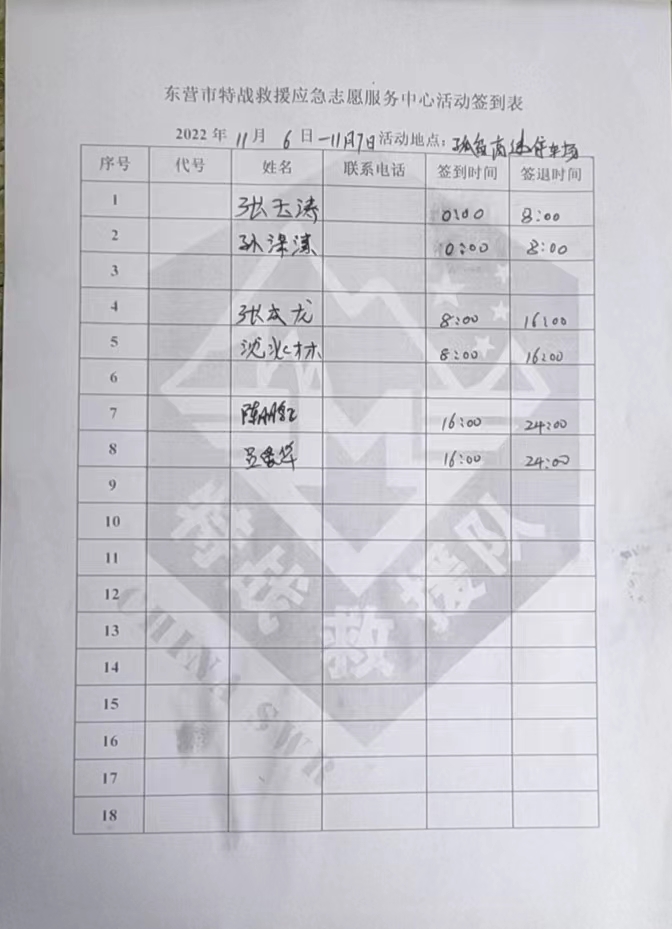 东营市特战救援应急志愿服务中心活动签到表
2022 年 11 月 6 日 - 11月7日 活动地点: 高速停车场
序号 代号 姓名 联系电话 签到时间 签退时间
1 张玉涛 0:00 8:00
2 孙 0:00 8:00
3
4 张文龙 8:00 16:00
5 沈兆林 8:00 16:00
6
7 陈 16:00 24:00
8 吕 华 16:00 24:00
9
10
11
12
13
14
15
16
17
18
特战救援队
CHINA SWR